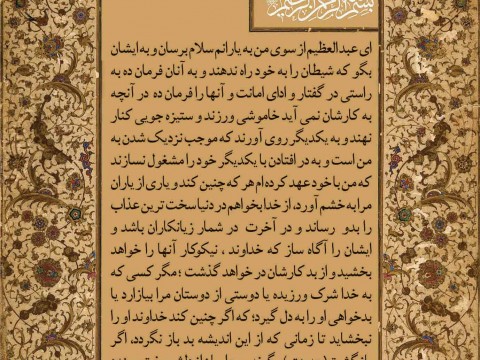 بسم الله الرحمن الرحیم
ای عبدالعظیم از سوی من به یارانم سلام برسان و به ایشان
بگو که شیطان را به خود راه ندهند و به آنان فرمان ده به
راستی در گفتار و ادای امانت و آنها را فرمان ده در آنچه
به کارشان نمی آید خاموشی ورزند و ستیزه جویی کنار
نهند و به یکدیگر روی آورند که موجب نزدیک شدن به
من است و به در افتادن با یکدیگر خود را مشغول نسازند
که من با خود عهد کرده ام هر که چنین کند و یاری از یاران
مرا به خشم آورد، از خدا بخواهم در دنیا سخت ترین عذاب
را بدو رساند و در آخرت در شمار زیانکاران باشد و
ایشان را آگاه ساز که خداوند ، نیکوکار آنها را خواهد
بخشید و از بد کارشان در خواهد گذشت ؛ مگر کسی که
به خدا شرک ورزیده یا دوستی از دوستان مرا بیازارد یا
بدخواهی او را به دل گیرد؛ که اگر چنین کند خداوند او را
نبخشاید تا زمانی که از این اندیشه بد باز نگردد، اگر